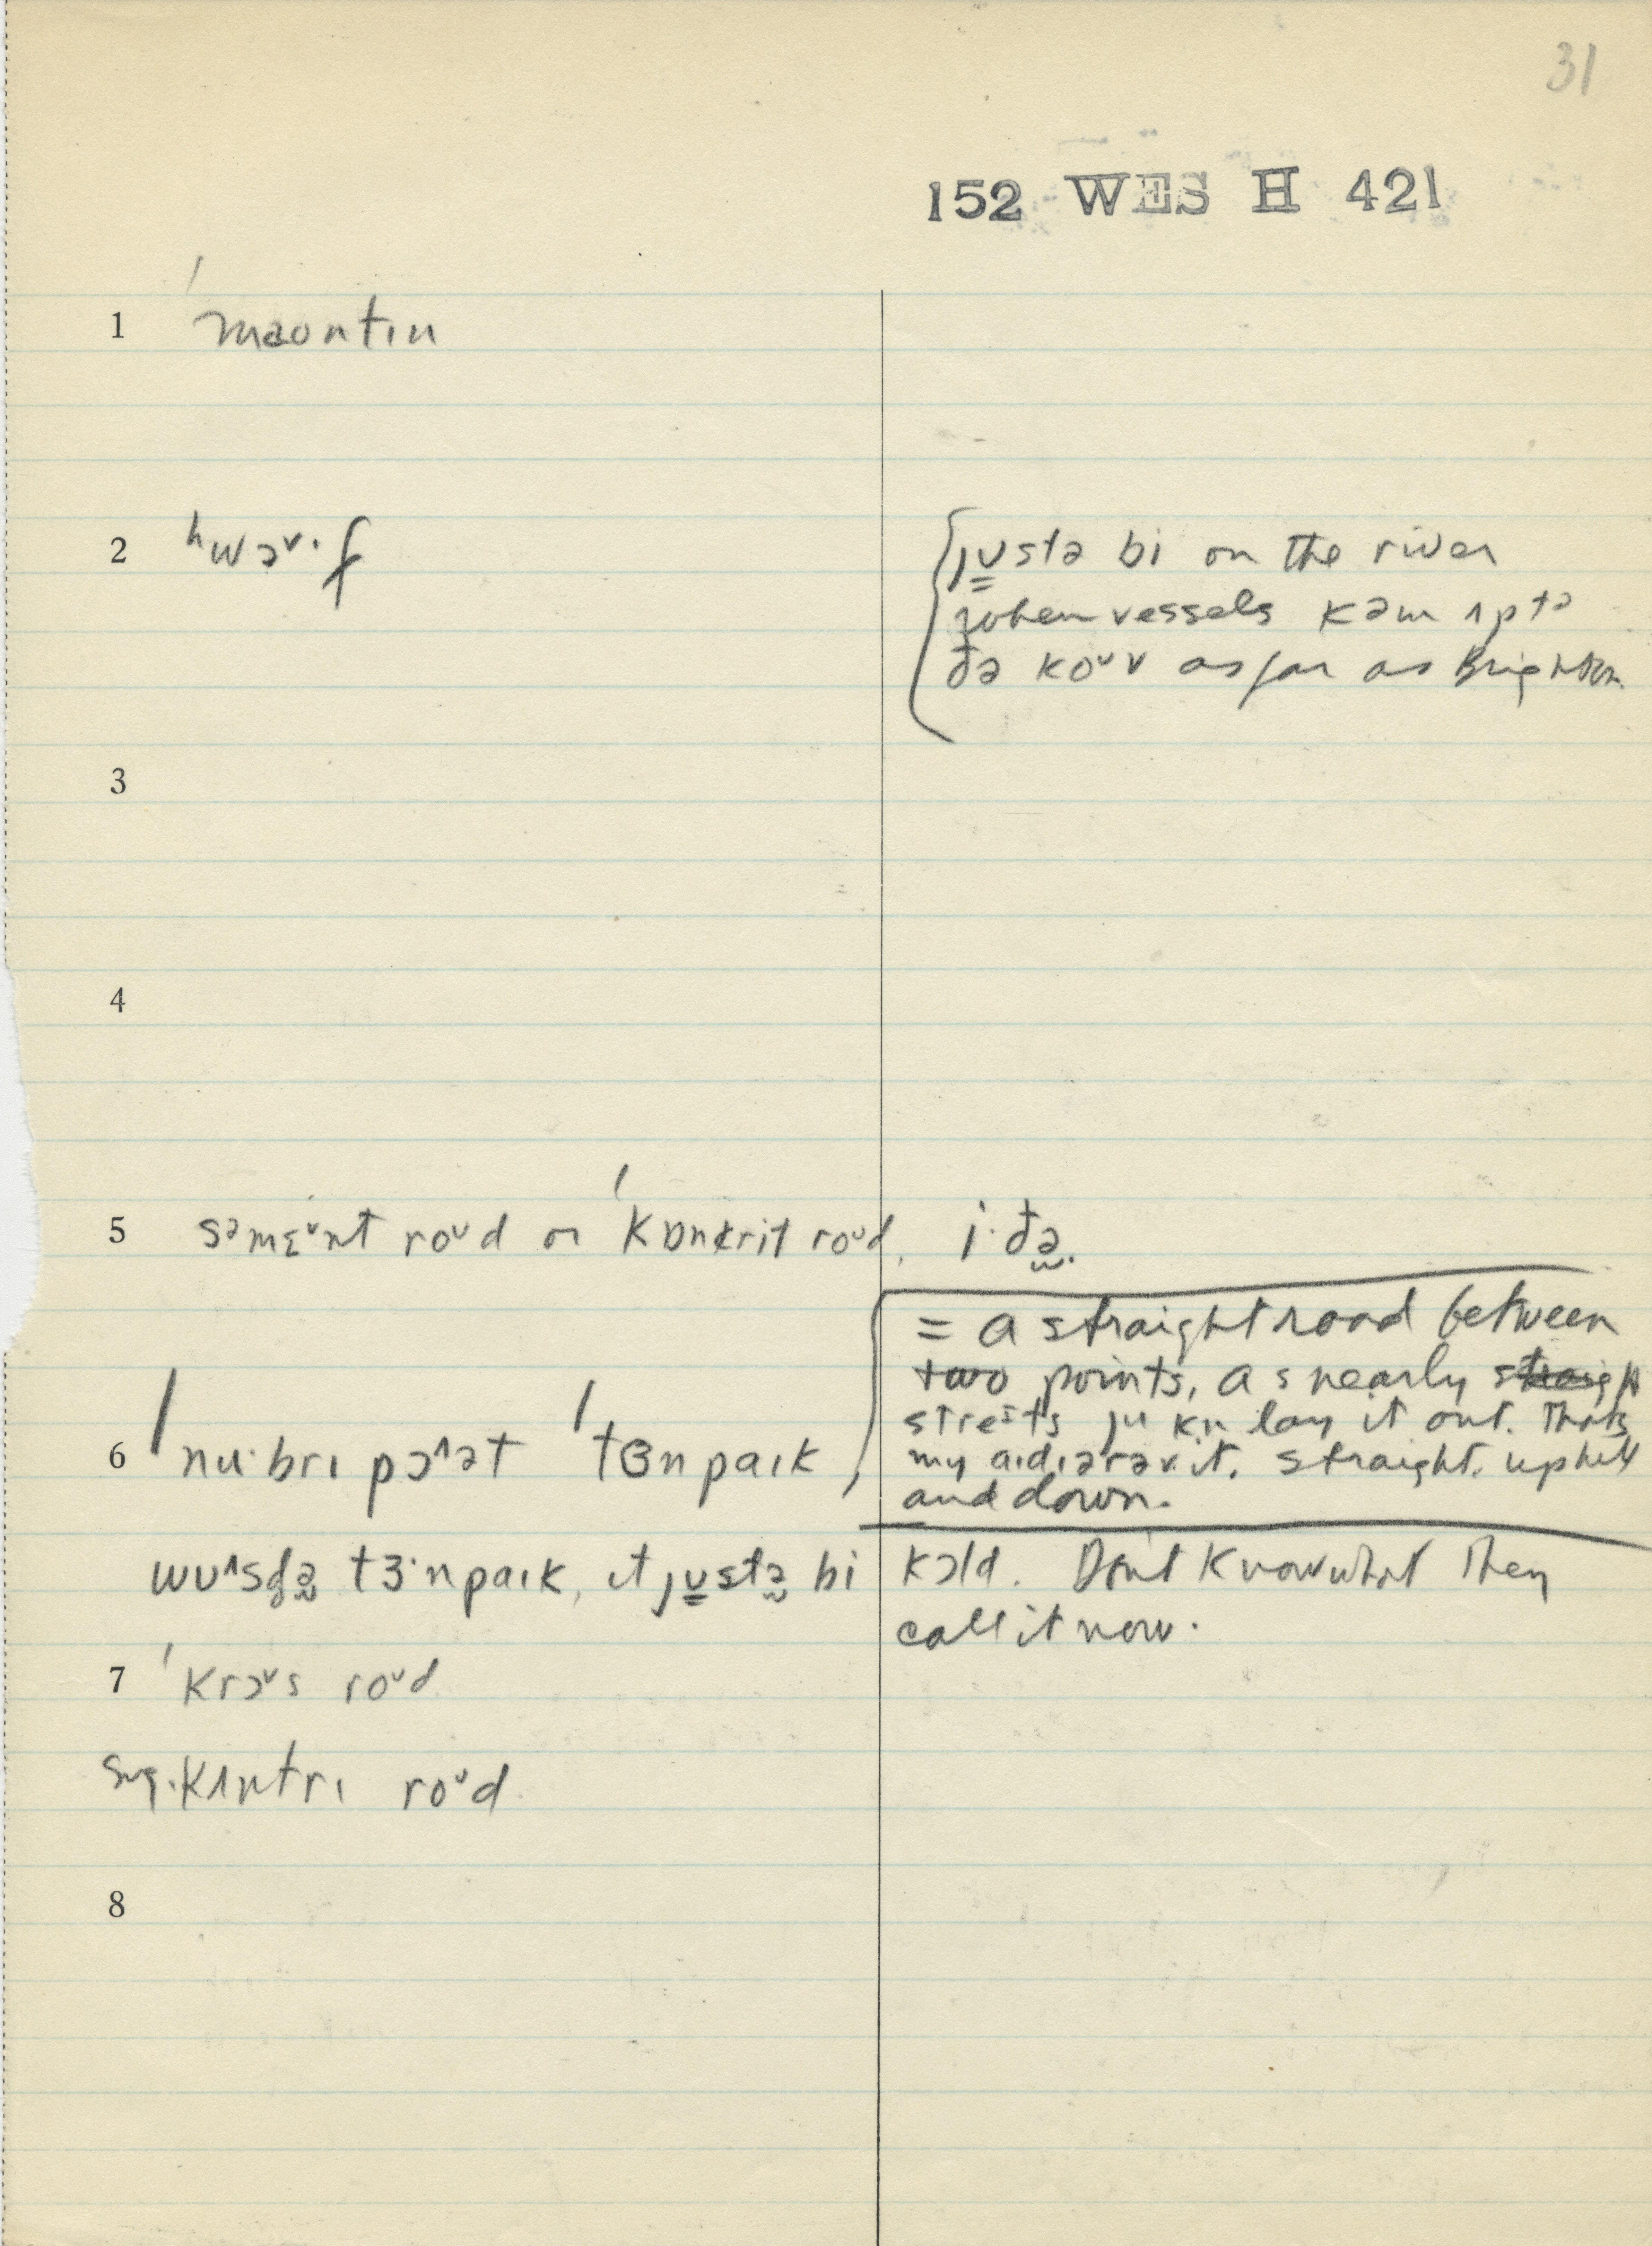 31
152 WES H 421
1 ˈmaʊntɪn
2 ʰwɔ˅·f
jʊstə bi on the river
when vessels kəm ʌptə
ðə koᵛv as far as Brighton
3
4
5 səmɛ˅nt roᵘd or ˈkɒnkrit roᵘd. i·ðə.
= a straight road between
two points, as nearly
streɪts ju kn lay it out. Thats
my aɪdɪərəv it. straight. uphill
and down.
6 ˈnu·brɪ pɔ^ət ˈtɜnpaɪk,
wʊ^sdə tɜ·npaɪk, ɪt jʊstə bi kɔld. Don't know what they
call it now.
7 ˈkrɔ˅s roᵘd
sug. kʌntrɪ roᵘd.
8